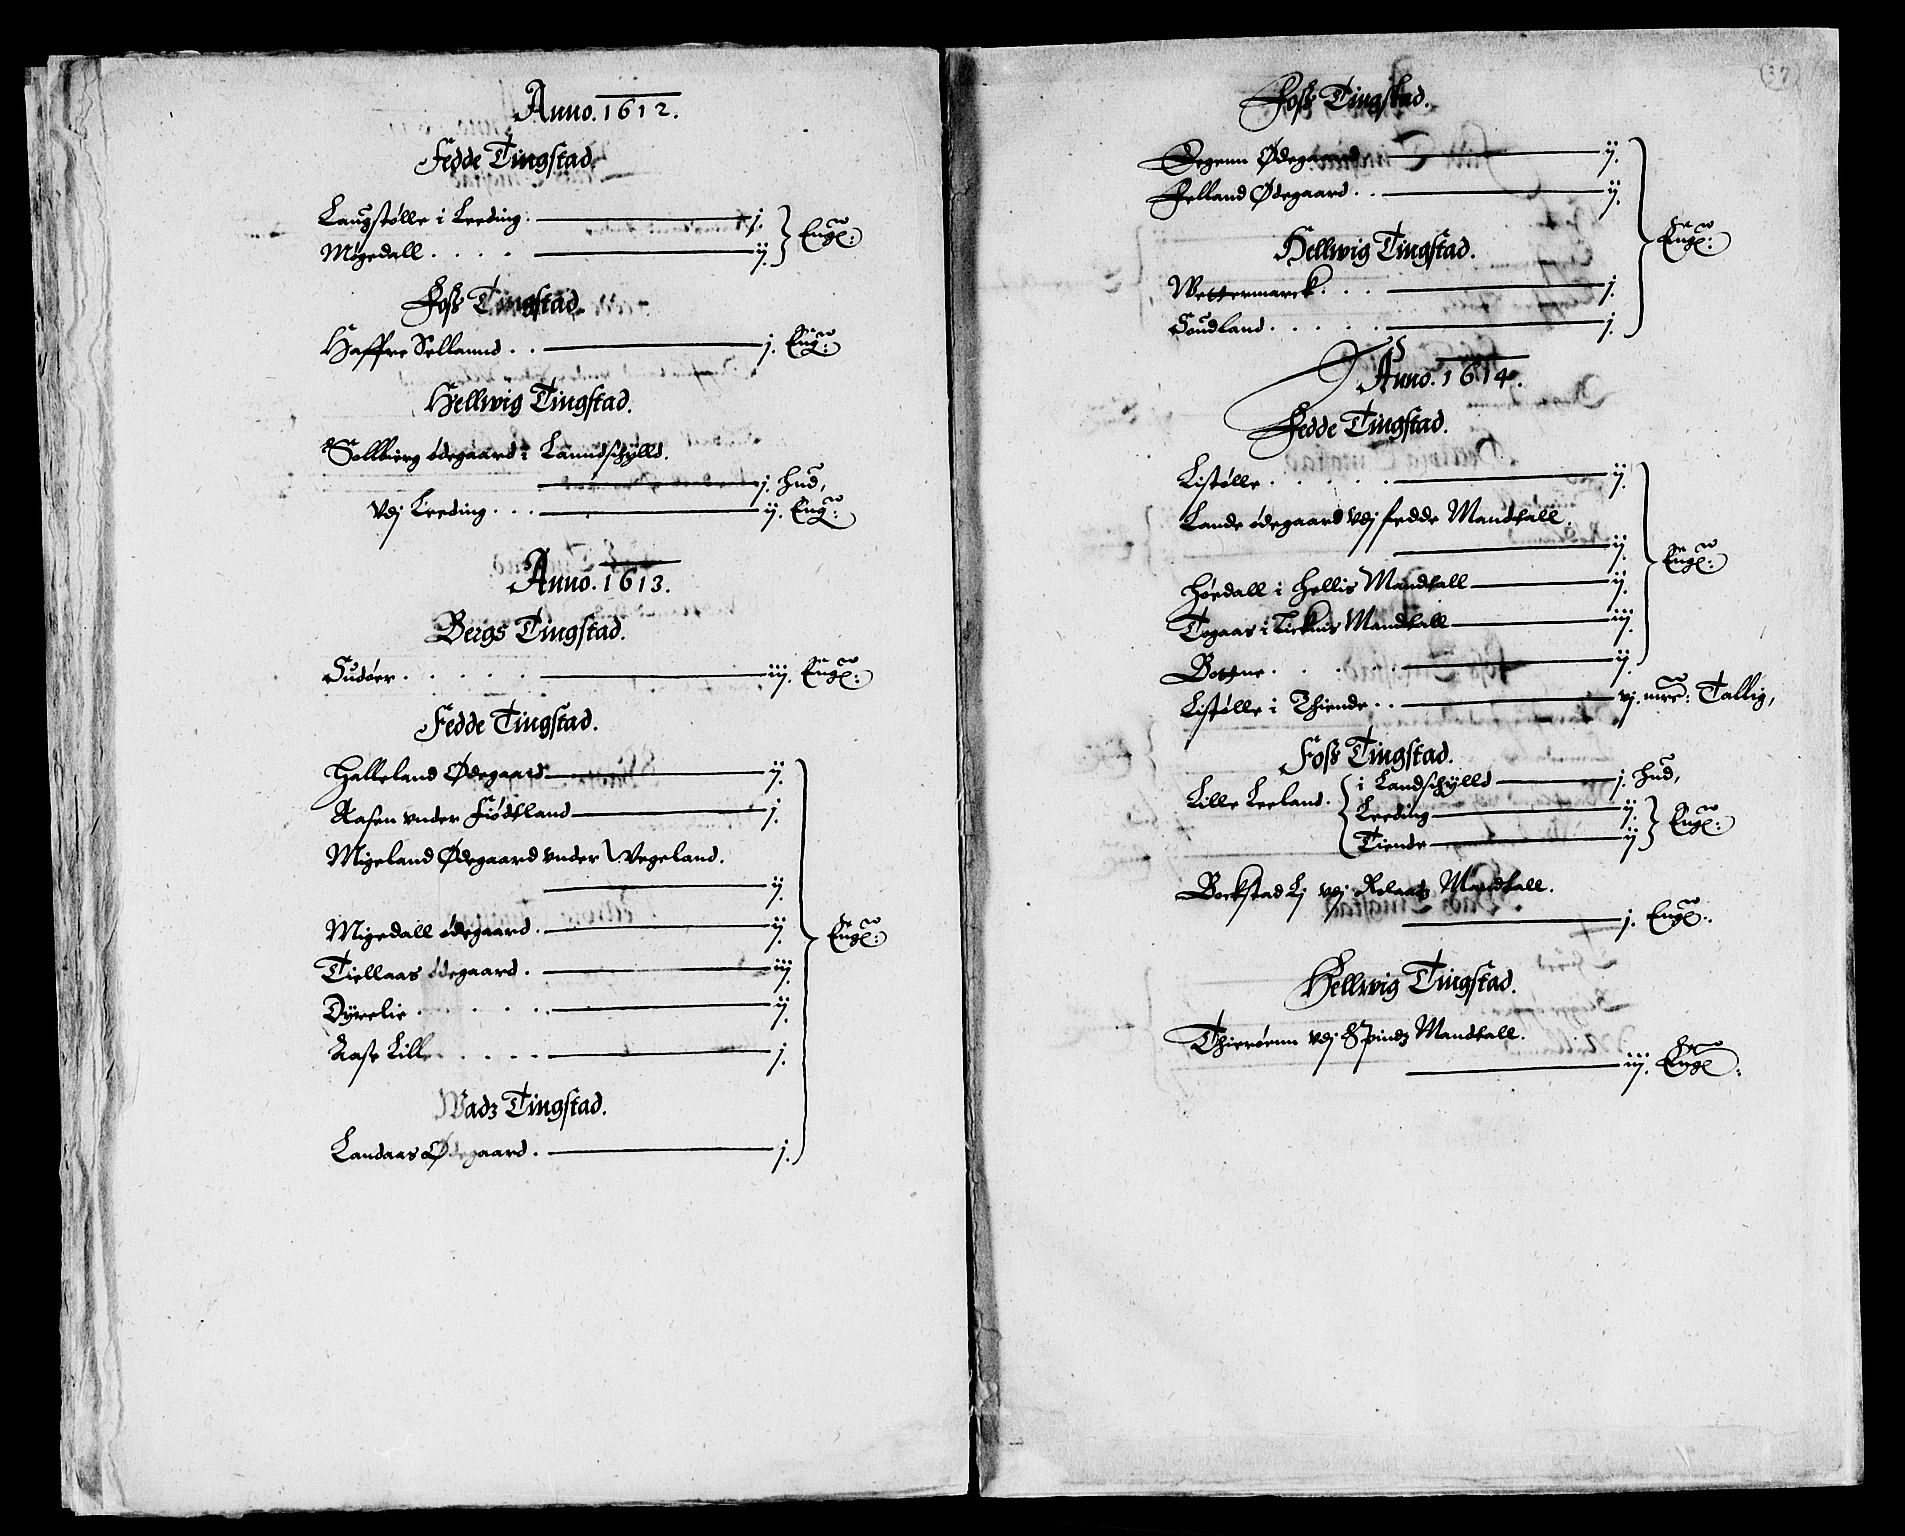 Anno. 1612.
Fedde Tingstad
Laugstølle i Leeding. j.
Møgedall . . . . ij. Engl:
Foss Tingstad.
Haffre Sellannd . . j. Eng:
Hellwig Tingstad.
Sollbierg ødegaard i Lanndschylld.
j. hud,
vdj Leeding . . . ij. Eng:
Anno. 1613.
Bergs Tingstad.
Sudøer . . . . . iij. Engl:
Fedde Tingstad.
Halleland Ødegaard ij.
Aasen vnder Fiødtland j.
Migeland Ødegaard vnder Vegeland.
ij.
Migedall ødegaard. ij.
Tiellaas ødegaard . iij.
Engl:
Dÿrelie . . . . . ij.
Aase Lille . . . . j.
Wadz Tingstad.
Landaas Ødegaard . j.
37
Foss Tingstad.
Degenn Ødegaard ij.
Felland Ødegaard . . ij.
Engl:
Hellwig Tingstad.
Wettermarck . . . j.
Soudland . . . . . j.
Anno. 1614.
Fedde Tingstad.
Listølle . . . . . ij.
Lande ødegaard vdj fedde Mandtall.
ij.
Engl:
Høedall i hellis Mandtall ij.
Togaas i Lieknis Mandtall iij.
Bottne . . . . . ij.
Listølle i Thiende . . vj. mrc: Tallig,
Foss Tingstad.
Lille Leeland. i Landschylld j. hud,
Leeding ij.
Tiende ij Engl:
Bockstad Lj vdj Mandtall.
j. Engl:
Hellwig Tingstad.
Thierøenn vdj Spindz Mandtall.
iij. Engl: